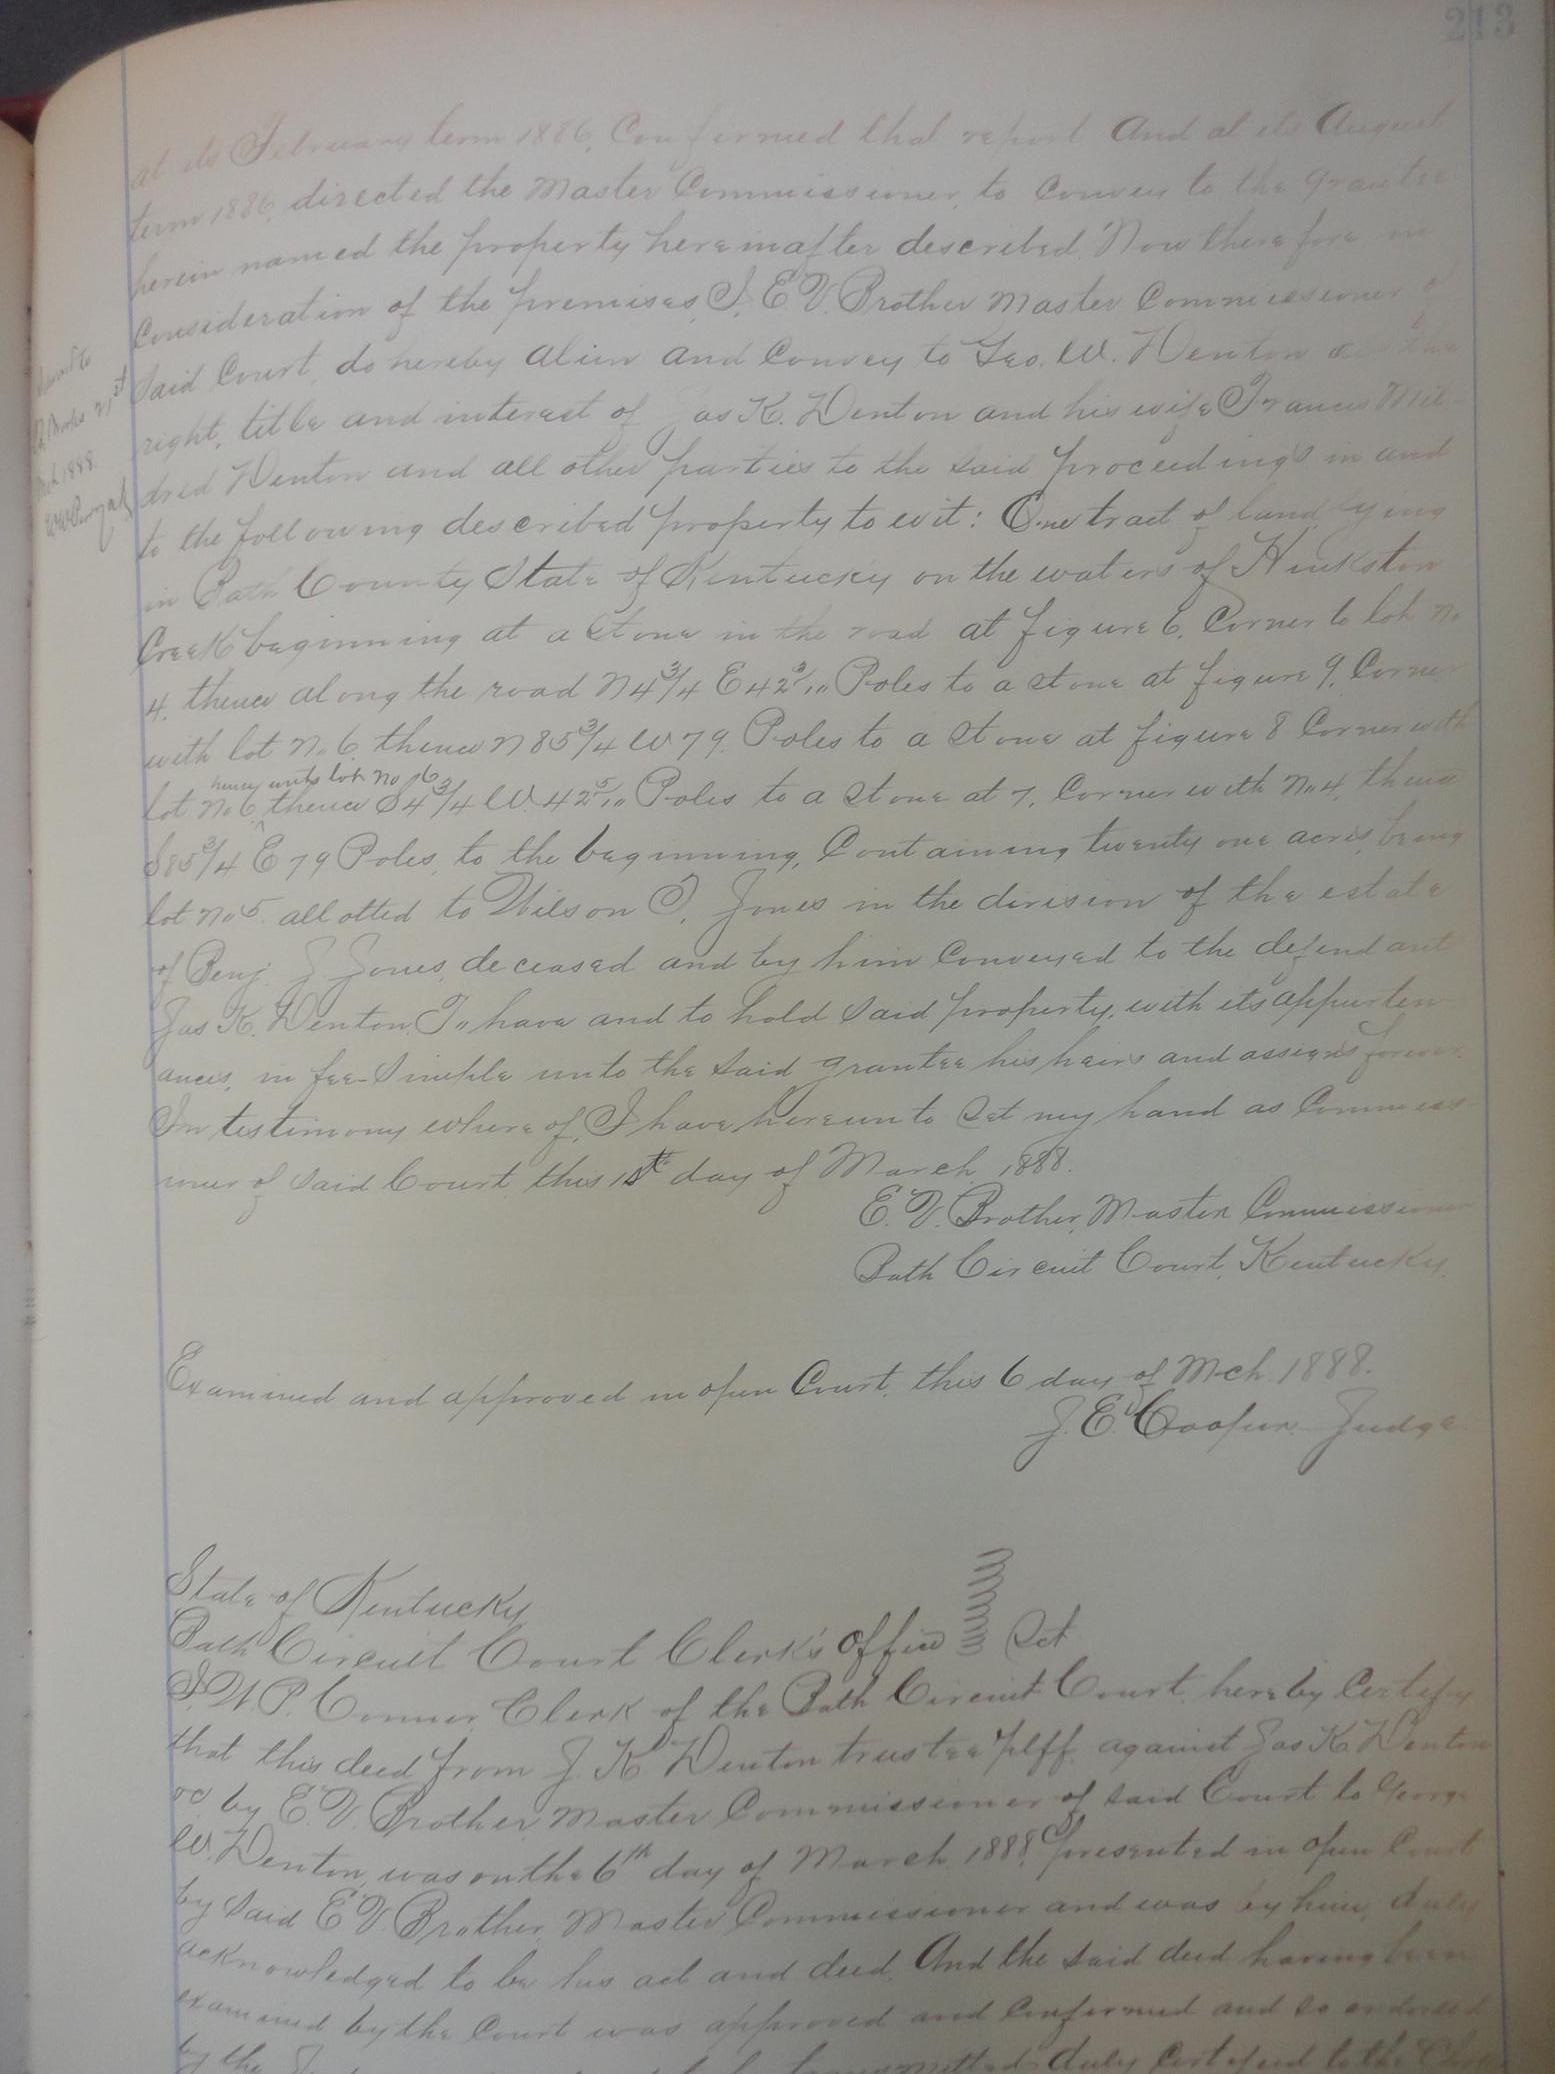 213
at its February term 1886, Confirmed that report And at its August
term 1886, directed the Master Commissioner, to Convey to the grantee
herein named the property hereinafter described. Now therefore in
Consideration of the premises, I, E. V. Brother Master Commissioner of
said Court, do hereby alien and Convey to Geo. W. Denton all the
right, title and interest of Jas K. Denton and his wife Frances Mil-
dred Denton and all other parties to the said proceedings in and
to the following described property to wit: One tract of land lying
in Bath County State of Kentucky on the waters of Hinkston
Creek beginning at a stone in the road at figure 6, Corner to lot No
4, thence along the road N 4 3/4 E 42 3/10 Poles to a stone at figure 9, Corner
with lot No 6, thence N 85 3/4 W 79 Poles to a stone at figure 8 Corner with
lot No 6, thence S 4 3/4 W. 42 5/10 Poles to a stone at 7, Corner with No 4, thence
with lot No 6
S 85 3/4 E 79 Poles, to the beginning, Containing twenty one acres, being
lot No 5 allotted to Wilson S. Jones in the division of the estate
of Benj. J Jones, deceased and by him Conveyed to the defendant
Jas K. Denton. To have and to hold said property, with its appurten
ances, in fee-simple unto the said grantee his heirs and assigns forever.
In testimony where of, I have hereunto set my hand as Commiss
ioner of said Court, this 1st day of March 1888.
E. V. Brother, Master Commissioner
Bath Circuit Court, Kentucky.
Mch 1888
Examined and approved in open Court, this 6 day of Mch 1888.
J. E. Cooper Judge
State of Kentucky
Bath Circuit Court Clerk's office Sct
I. W. P. Conner, Clerk of the Bath Circuit Court, hereby Certify
that this deed from J. K Denton trustee plff. against Jas K Denton
&c by E. V. Brother Master Commissioner of said Court to George
W. Denton, was on the 6th day of March 1888, presented in open Court
by said E. V. Brother, Master Commissioner and was by him, duly
acknowledged to be his act and deed. And the said deed having been
examined by the Court was approved and Confirmed and so endorsed
by the transmitted duly Certified to the